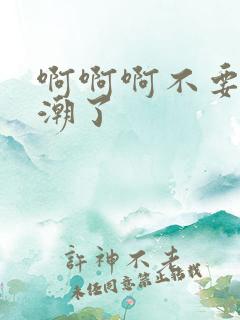 啊啊啊不要
潮了
許神不老
未经同意禁止转载